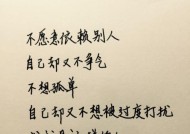 不愿意依赖别人
自己却又不争气
不想孤单
自己却又不想被过度打扰